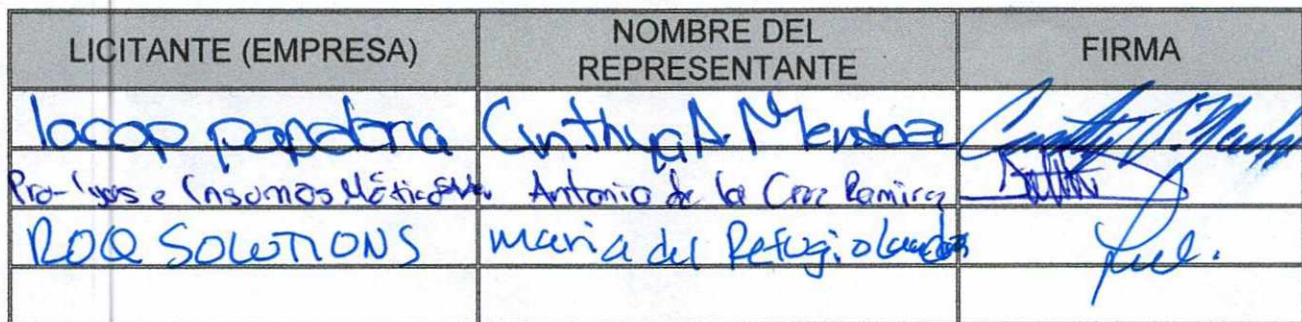 LICITANTE (EMPRESA) NOMBRE DEL REPRESENTANTE FIRMA
Iacop papeleria Cinthya A. Mendoza
Pro-lyos e Insumos Antonio de la Cruz Ramirez
ROQ SOLUTIONS maria del Refugio